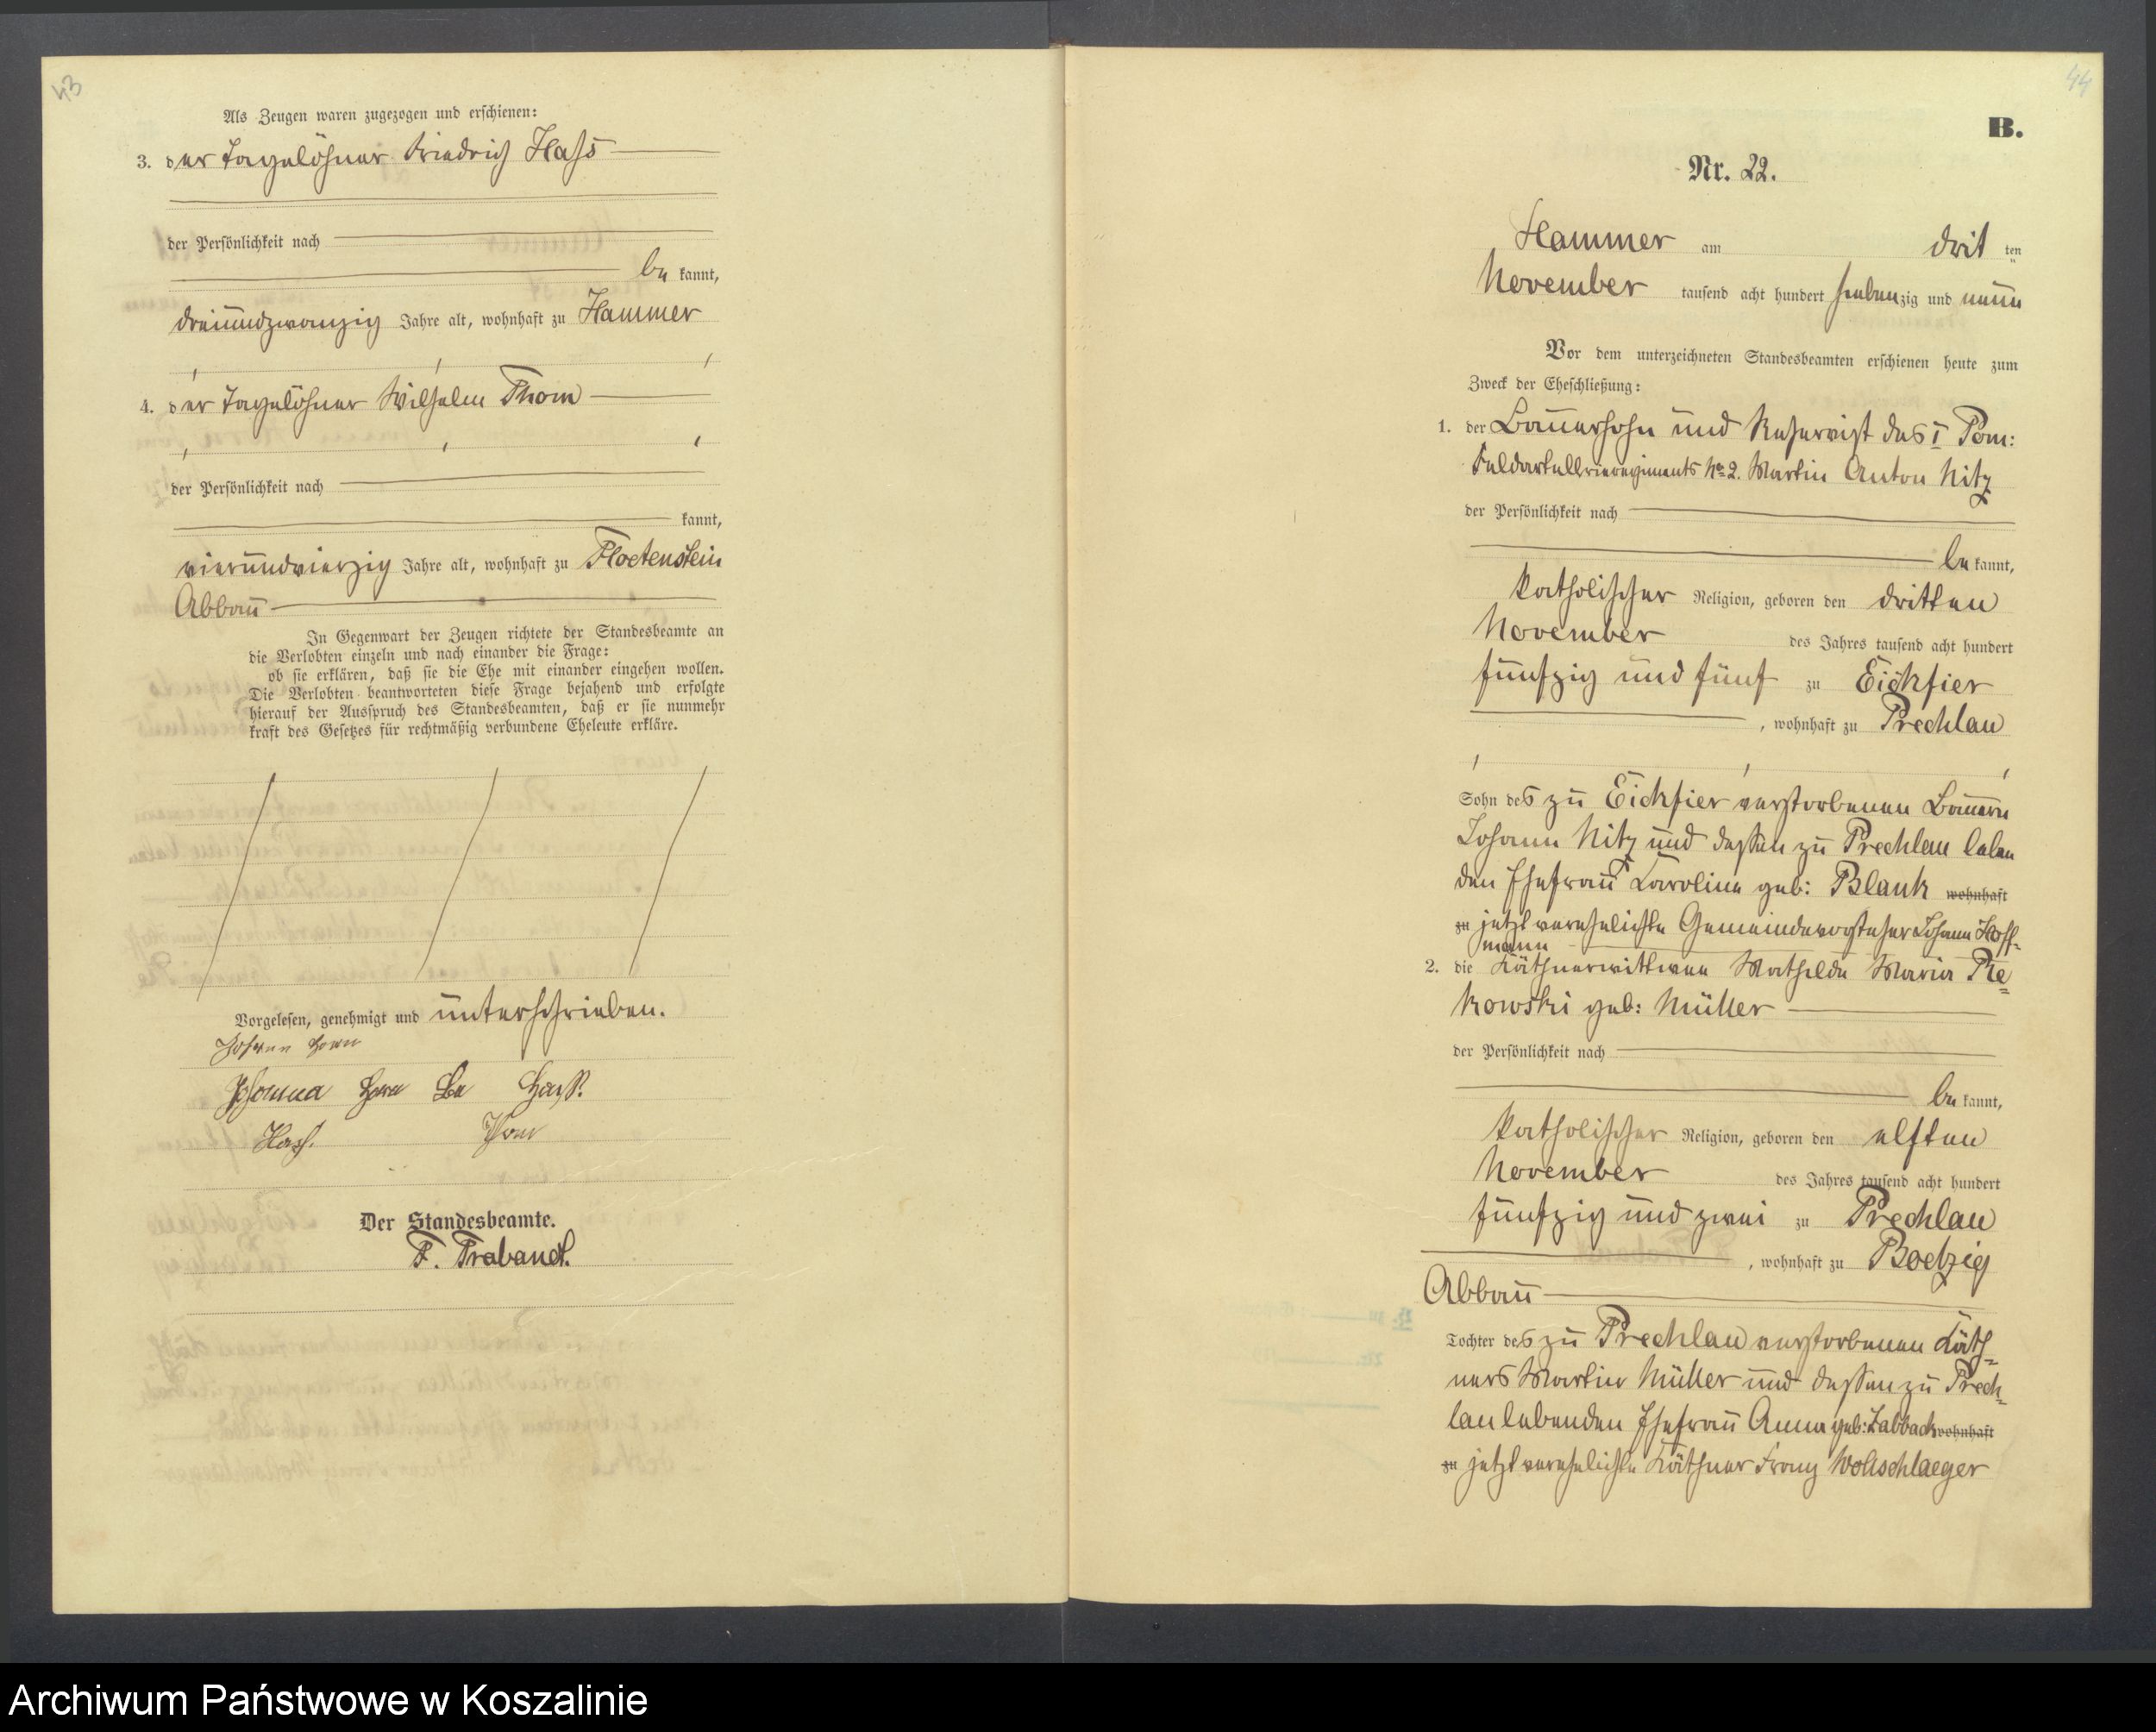 43
Als Zeugen waren zugezogen und erschienen:
3. der Tagelöhner Friedrich Hass
der Persönlichkeit nach
be kannt,
dreiundzwanzig Jahre alt, wohnhaft zu Hammer
4. der Tagelöhner Wilhelm Thom
der Persönlichkeit nach
kannt,
vierundvierzig Jahre alt, wohnhaft zu Floetenstein
Abbau
In Gegenwart der Zeugen richtete der Standesbeamte an
die Verlobten einzeln und nach einander die Frage:
ob sie erklären, daß sie die Ehe mit einander eingehen wollen.
Die Verlobten beantworteten diese Frage bejahend und erfolgte
hierauf der Ausspruch des Standesbeamten, daß er sie nunmehr
kraft des Gesetzes für rechtmäßig verbundene Eheleute erkläre.
Vorgelesen, genehmigt und unterschrieben.
Johann
Hass.
Hass. Thom
Der Standesbeamte.
F. Trabandt.
44
B.
Nr. 22.
Hammer am drit ten
November tausend acht hundert sieben zig und neun
Vor dem unterzeichneten Standesbeamten erschienen heute zum
Zweck der Eheschließung:
1. der Bauersohn und Reservist des I Pom:
Feldartillerieregiments No 2. Martin Anton Nitz
der Persönlichkeit nach
be kannt,
katholischer Religion, geboren den dritten
November des Jahres tausend acht hundert
fünfzig und fünf zu Eickfier
, wohnhaft zu Prechlau
Sohn des zu Eickfier verstorbenen Bauern
Johann Nitz und dessen zu Prechlau leben
den Ehefrau Karoline geb: Blank wohnhaft
zu jetzt verehelichte Gemeindevorsteher Johann Hoff-
mann
2. die Käthnerwittwe Mathilde Maria Re-
kowski geb: Müller
der Persönlichkeit nach
be kannt,
katholischer Religion, geboren den elften
November des Jahres tausend acht hundert
fünfzig und zwei zu Prechlau
, wohnhaft zu Boetzig
Abbau
Tochter des zu Prechlau verstorbenen Käth-
ners Martin Müller und dessen zu Prech-
lau lebenden Ehefrau Anna geb: Labbach wohnhaft
zu jetzt verehelichte Käthner Franz Wollschlaeger
Archiwum Państwowe w Koszalinie